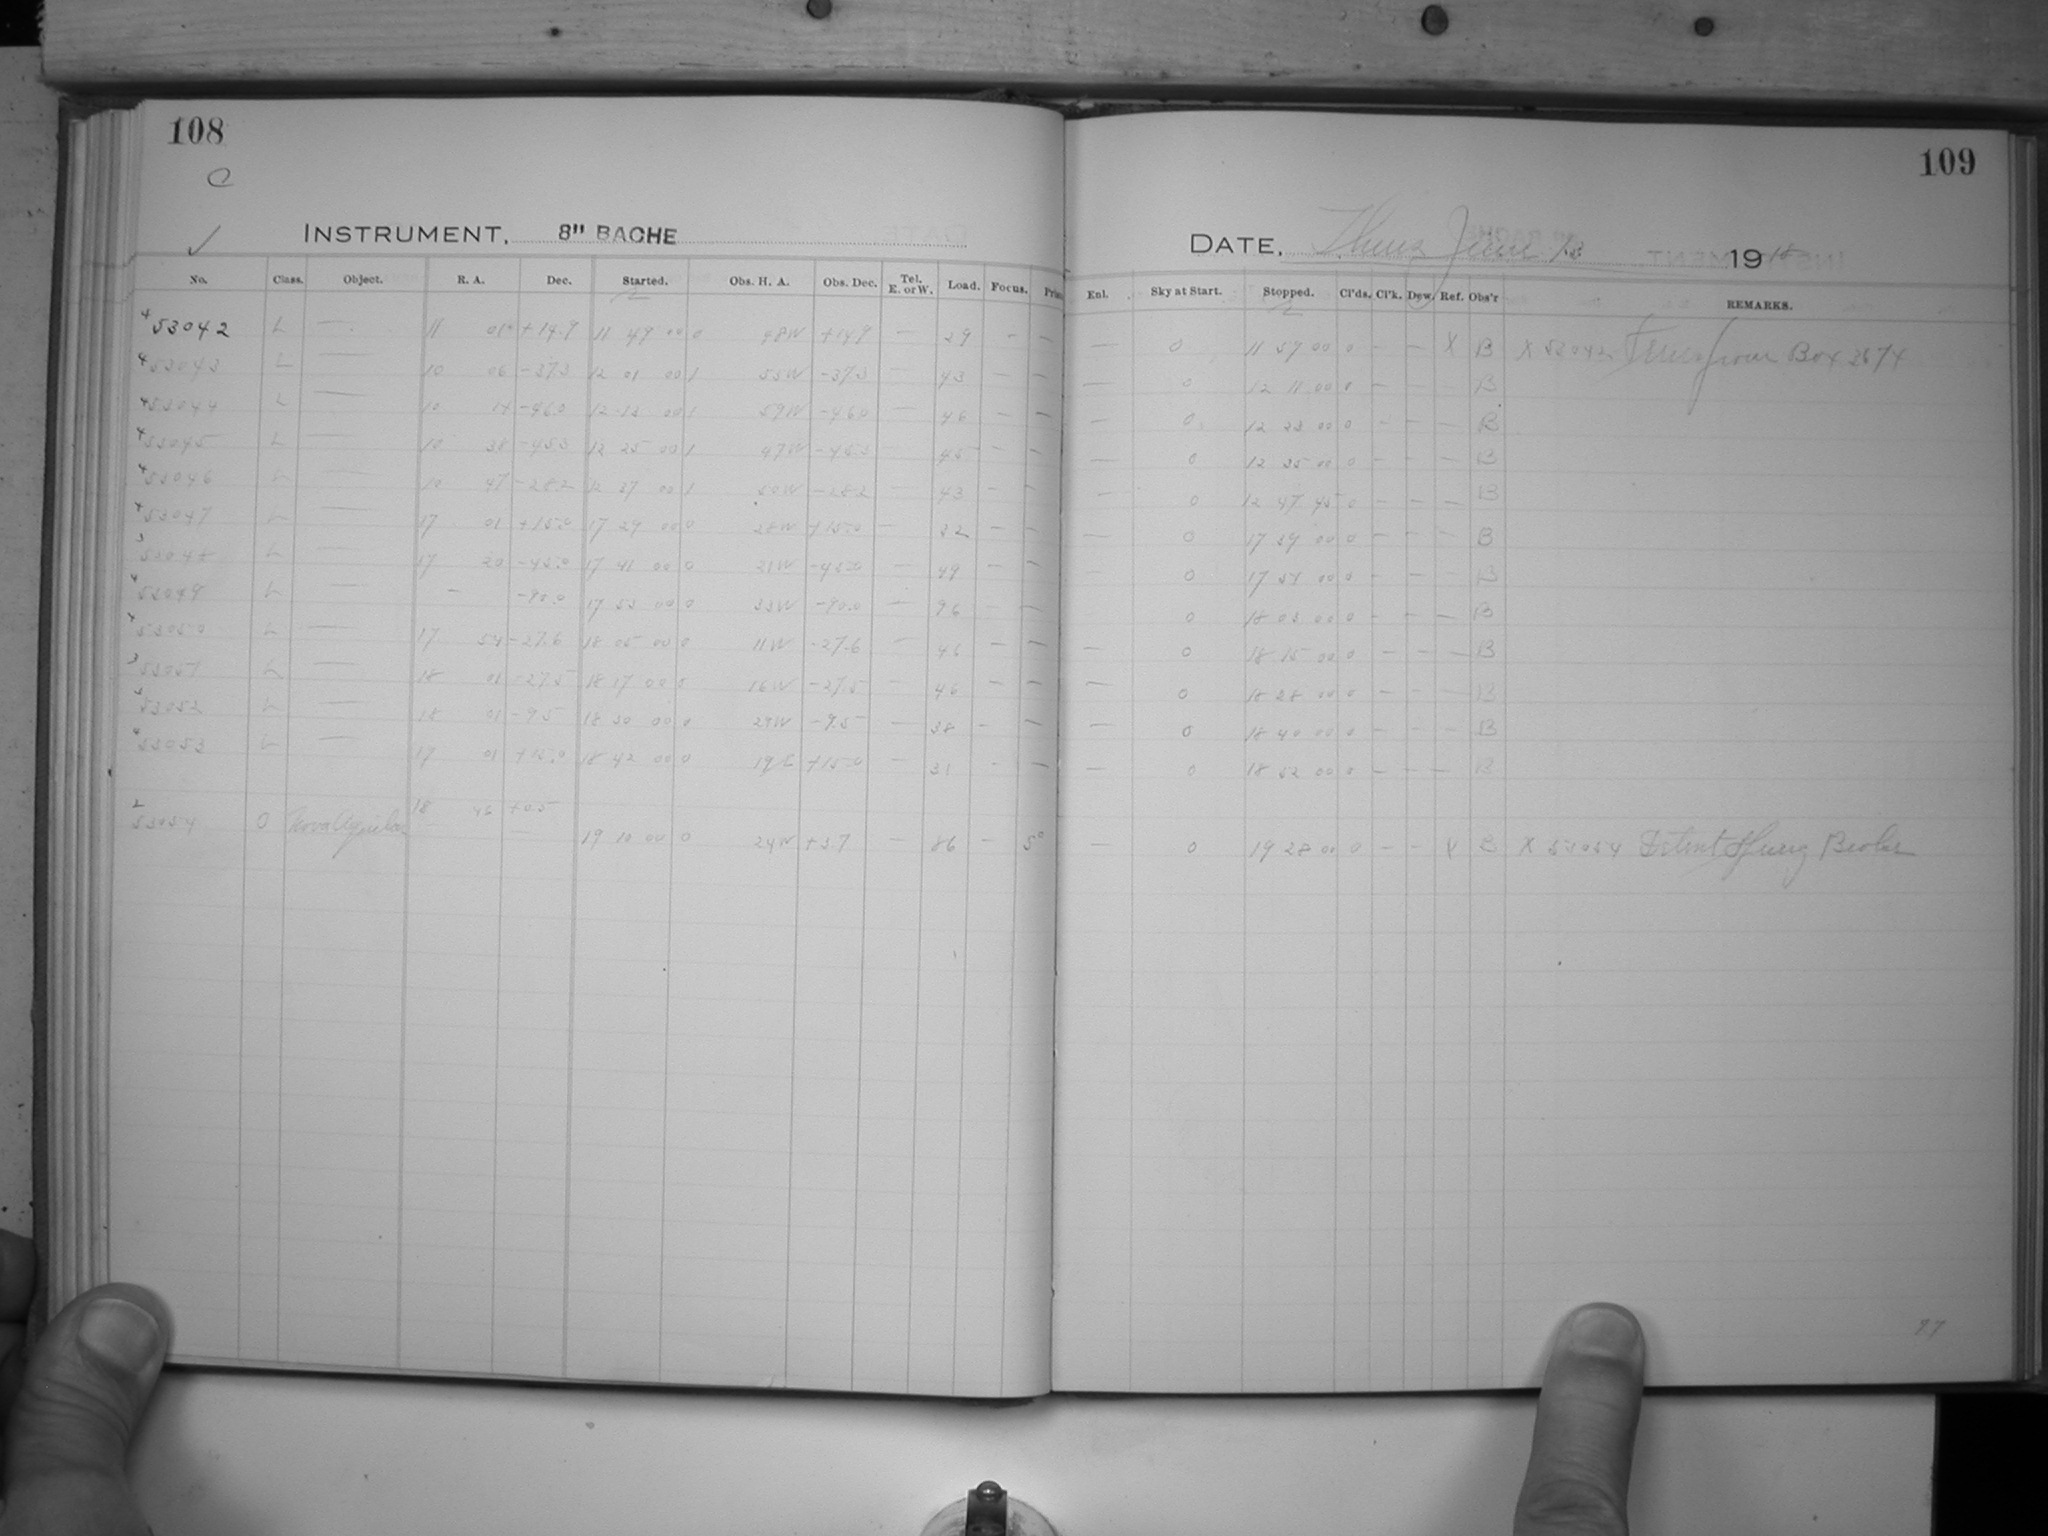 108
C
✓
INSTRUMENT, 8" BACHE
No. Class. Object. R. A. Dec. Started. Obs. H. A. Obs. Dec. Tel. E. or W. Load. Focus.
53042 L — 11 01 +14.9 11 49 00 0 48W +14.9 — 29 - —
53043 L — 10 06 -37.3 12 01 00 1 55W -37.3 — 43 — —
53044 L — 10 14 -46.0 12 13 00 1 59W -46.0 — 46 — —
53045 L — 10 38 -45.3 12 25 00 1 47W -45.3 — 45 — —
53046 L — 10 47 -28.2 12 37 00 1 50W -28.2 — 43 — —
53047 L — 17 01 +15.0 17 29 00 0 28W +15.0 — 32 — —
53048 L — 17 20 -45.0 17 41 00 0 21W -45.0 — 49 — —
53049 L — — -90.0 17 53 00 0 33W -90.0 — 96 — —
53050 L — 17 54 -27.6 18 05 00 0 11W -27.6 — 46 — —
53051 L — 18 01 -27.5 18 17 00 0 16W -27.5 — 46 — —
53052 L — 18 01 -9.5 18 30 00 0 29W -9.5 — 38 - —
53053 L — 17 01 +15.0 18 42 00 0 +15.0 — 31 - —
53054 O Nova Aquilae 18 46 +0.5
19 10 00 0 24W +3.7 — 86 — 5°
109
DATE, Thurs June 13 1918
Enl. Sky at Start. Stopped. Cl'ds. Cl'k. Dew. Ref. Obs'r REMARKS.
— 0 11 59 00 0 — — X B X 53042 from Box 2674
— 0 12 11 00 0 — — — B
— 0 12 23 00 0 - — — B
— 0 12 35 00 0 — — — B
— 0 12 47 45 0 — — — B
— 0 17 39 00 0 - — — B
— 0 17 51 00 0 - — — B
0 18 03 00 0 — — — B
— 0 18 15 00 0 — — — B
— 0 18 28 00 0 - - — B
— 0 18 40 00 0 - - - B
— 0 18 52 00 0 — — — B
— 0 19 28 00 0 - - X B X 53054 Detent Spring Broke